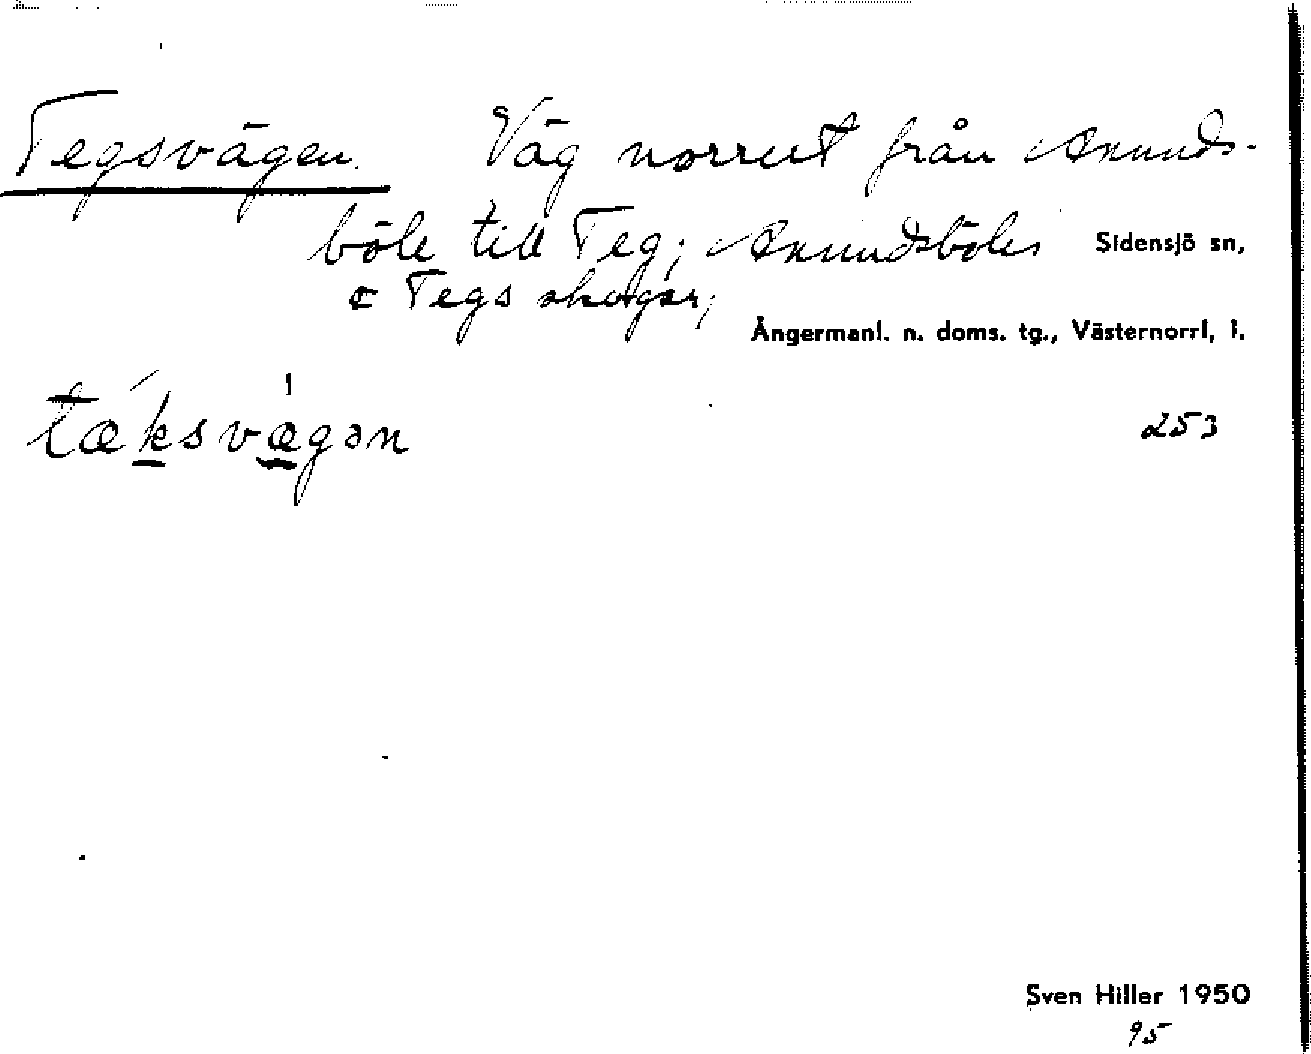 Tegsvägen. Väg norrut från Anunds-
böle till Teg; Anundsböles Sidensjö sn,
o Tegs skogar;
Ångermanl. n. doms. tg., Västernorrl, l.
tǽksvægən
253
Sven Hiller 1950
95